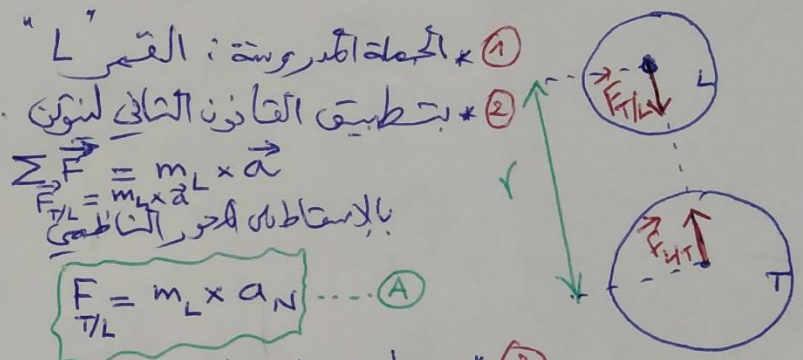 ① * الجملة المدروسة : القمر "L"
② * بتطبيق القانون الثاني لنيوتن
∑F⃗ = m_L × a⃗
F⃗_T/L = m_L × a⃗
بالإسقاط على المحور الناظمي
F_T/L = m_L × a_N ..... Ⓐ
③ *
F⃗_T/L
L
r
F⃗_L/T
T